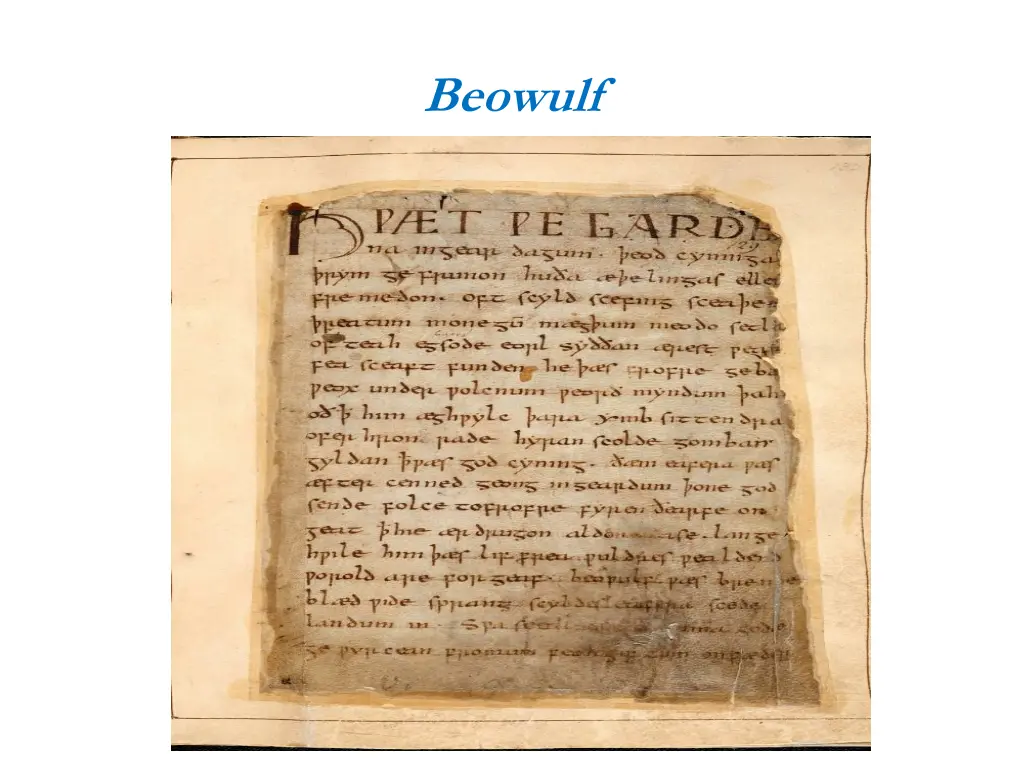 Beowulf
HǷÆT ǷE GARDE
na ingear dagum. þeod cyninga
þrym ge frunon huða æþelingas elle
fremedon. oft scyld scefing sceaþe
þreatum monegū mægþum meodo setla
of teah egsode eorl syððan ærest
fea sceaft funden he þæs frofre geba
ƿeox under ƿolcnum ƿeorð myndum þah
oð ꝥ him æghƿylc þara ymb sittendra
ofer hron rade hyran scolde gomban
gyldan ꝥ ƿæs god cyning. ðam eafera ƿæs
æfter cenned geong ingeardum þone god
sende folce tofrofre fyren ðearfe on
geat ꝥ hie ær drugon lange
hƿile him þæs lif frea ƿuldres ƿealdend
ƿorold are forgeaf. beoƿulf ƿæs breme
blæd ƿide sprang scyldes eafera scede
landum in. Sƿa gode
ge ƿyrcean fromum feoh giftum